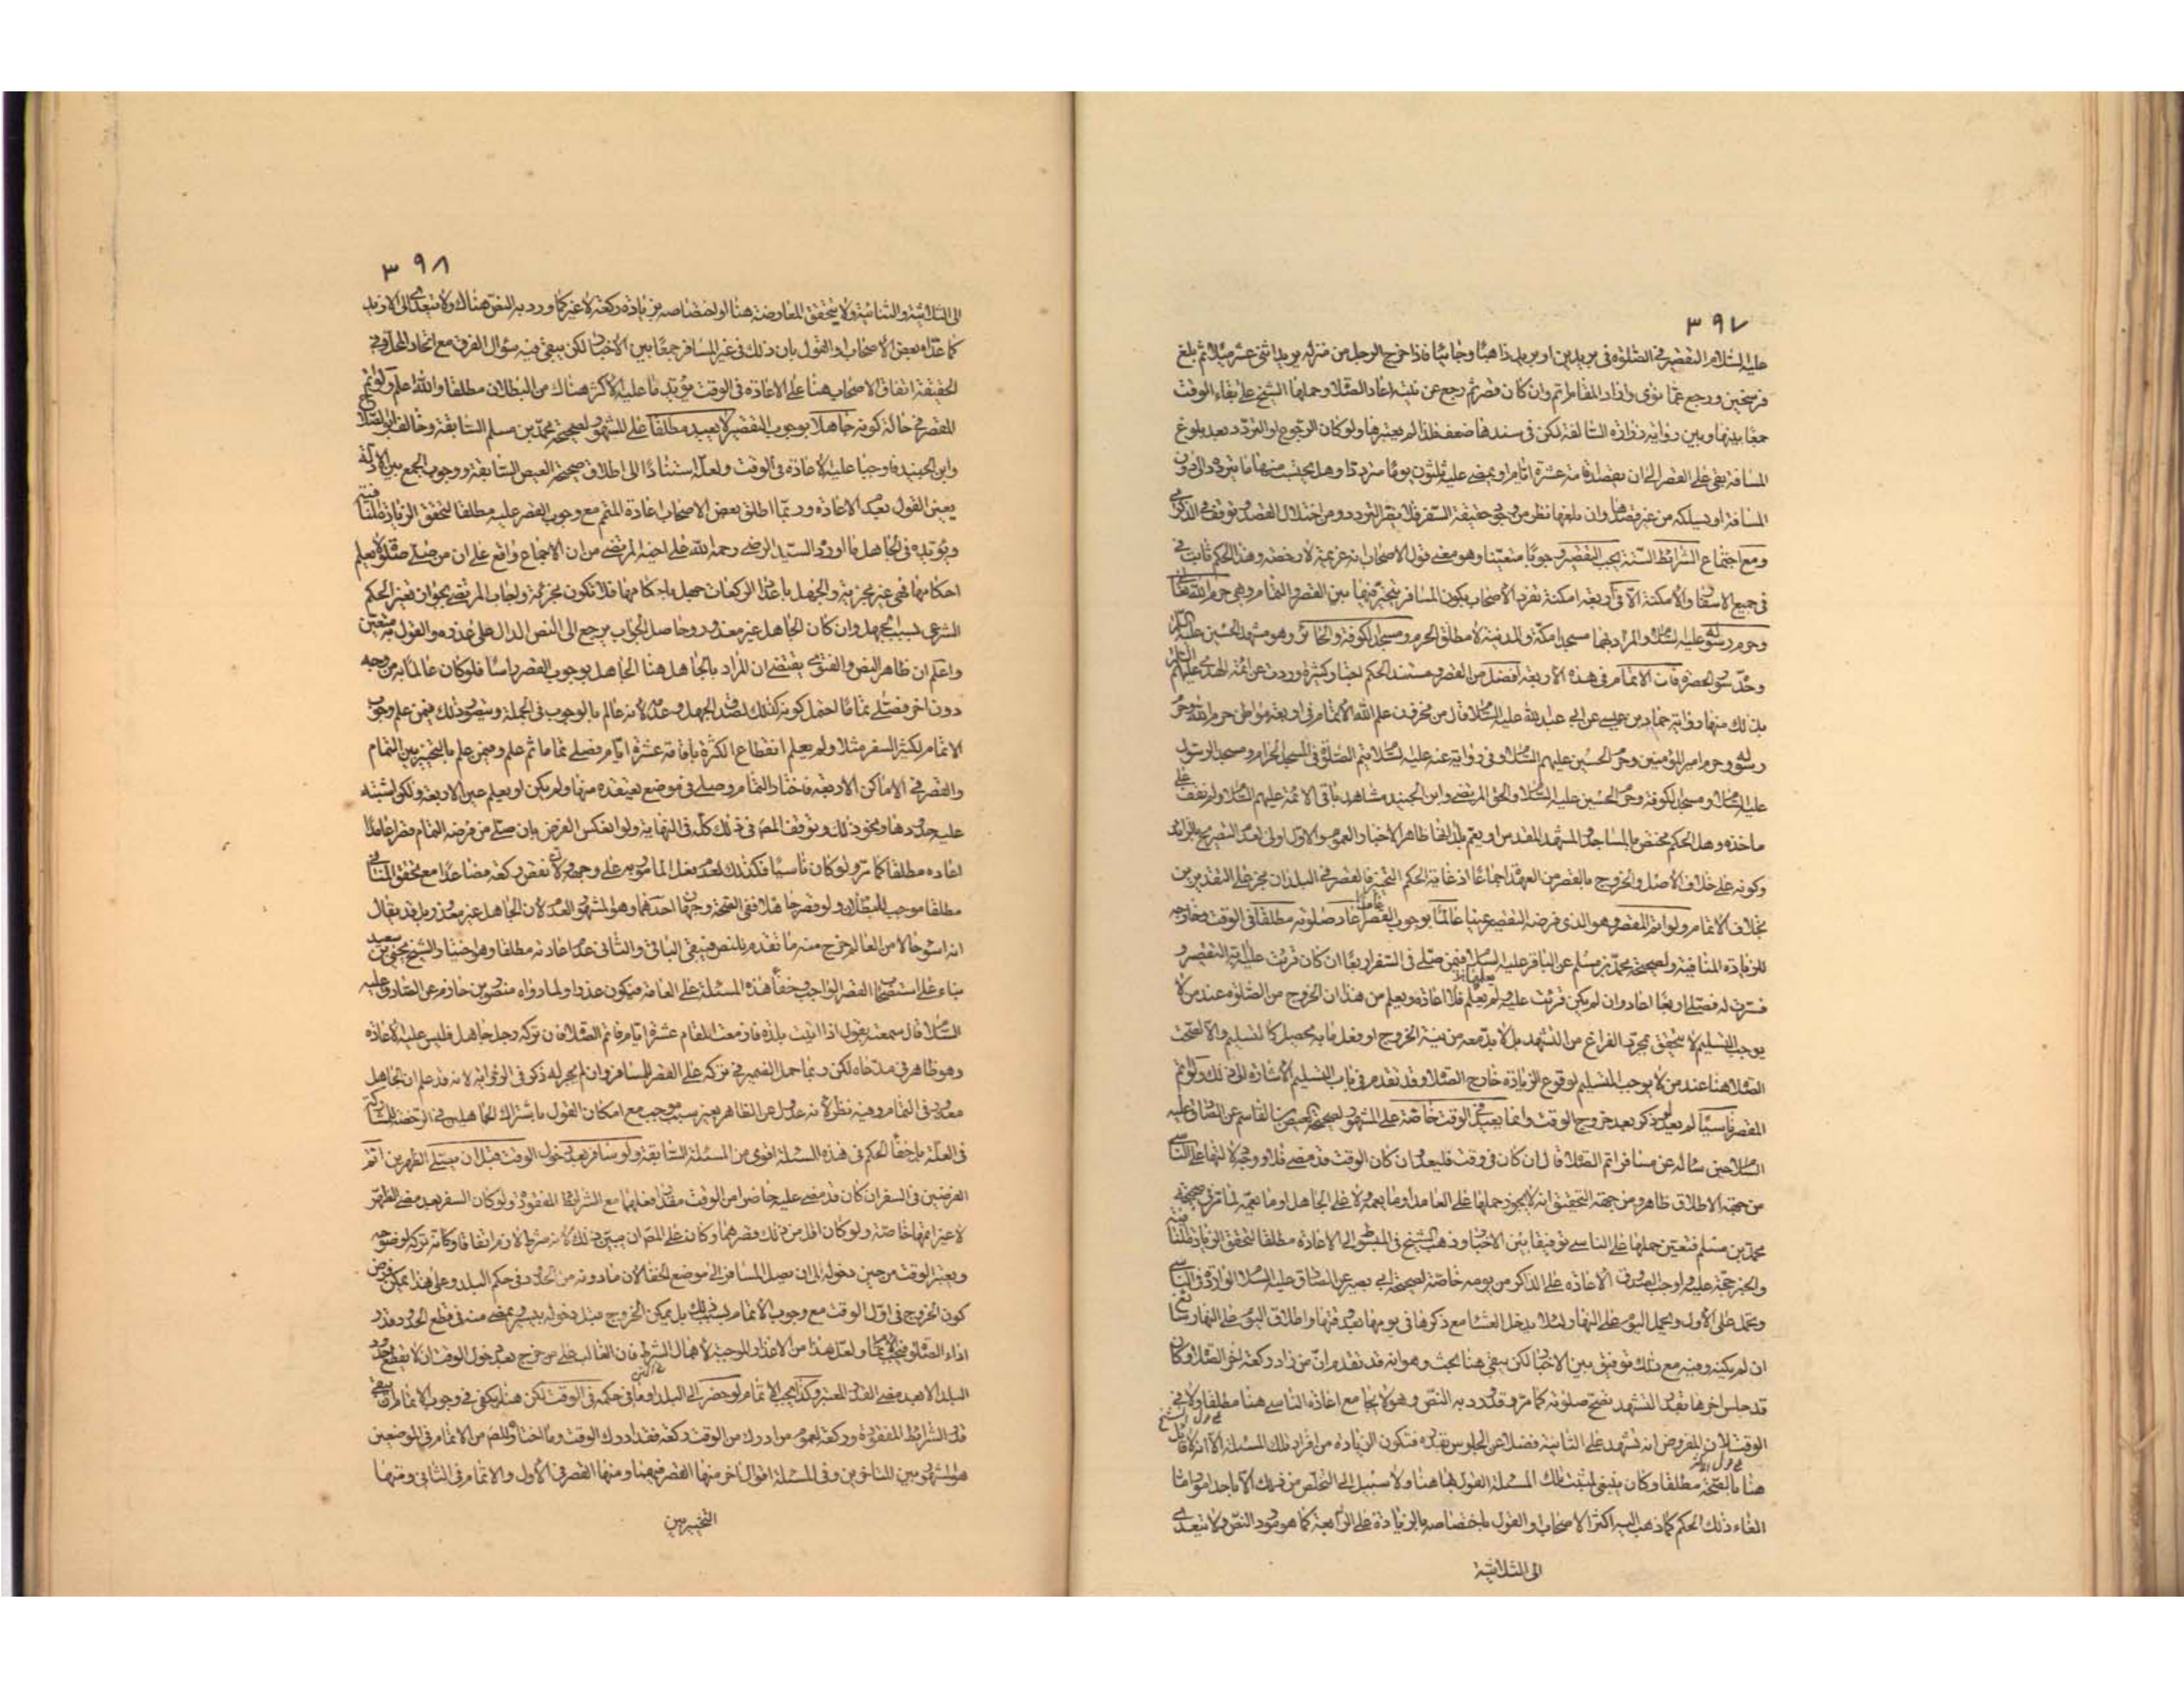 ٣٩٧
عليه السلام التقصير في الصلوة في بريدين او بريد ذاهبا وجائيا فاذا خرج الرجل من منزله يريد اثنى عشر ميلا ثم بلغ
فرسخين ورجع عما نوى واراد المقام اتم وان كان قصر ثم رجع عن نيته اعاد الصلاة وحملها الشيخ على بقاء الوقت
جمعا بينها وبين رواية زرارة السالفة لكن في سندها ضعف فلذا لم يعتبرها ولو كان الرجوع او التردد بعد بلوغ
المسافة بقى على القصر الى ان يقصد اقامة عشرة ايام او يمضى عليه ثلثون يوما مترددا وهل يحتسب منها ما يتردد الى دون
المسافة او يسلكه من غير قصد وان بلغها نظر من وجود حقيقة السفر فلا يضر التردد ومن اختلال القصد وتوقف في الذكرى
ومع اجتماع الشرائط الستة يجب التقصير وجوبا متعينا وهو معنى قول الاصحاب انه عزيمة لا رخصة وهذا الحكم ثابت
في جميع الاسفار والامكنة الا في اربعة امكنة تفرد الاصحاب بكون المسافر يتخير فيها بين القصر والتمام وهى حرم الله تعالى
وحرم رسوله عليه السلام والمراد بهما مسجدا مكة والمدينة لا مطلق الحرم ومسجد الكوفة والحائر وهو مشهد الحسين عليه السلام
فان الاتمام في هذه الاربعة افضل من القصر ومستند الحكم اخبار كثيرة وردت عن ائمة الهدى عليهم السلام
بذلك منها رواية حماد بن عيسى عن ابى عبد الله عليه السلام قال من مخزون علم الله الاتمام في اربعة مواطن حرم الله وحرم
رسوله وحرم امير المؤمنين وحرم الحسين عليهم السلام وفي رواية عنه عليه السلام يتم الصلوة في المسجد الحرام ومسجد الرسول
عليه السلام ومسجد الكوفة وحرم الحسين عليه السلام والحق المرتضى وابن الجنيد مشاهد باقى الائمة عليهم السلام ولم نقف على
ماخذه وهل الحكم مختص بالمساجد والمشهد المقدس او يعم بلدانها ظاهر الاخبار العموم والاول اولى لعدم التصريح بالزائد
وكونه على خلاف الاصل والخروج بالقصر من العهدة اجماعا اذ غاية الحكم التخيير فالقصر في البلدان مجز على التقديرين
بخلاف الاتمام ولو اتم المقصر وهو الذى فرضه التقصير عينا عالما بوجوب القصر اعاد صلوته مطلقا في الوقت وخارجه
للزيادة المنافية ولصحيحة محمد بن مسلم عن الباقر عليه السلام فيمن صلى في السفر اربعا ان كان قرئت عليه اية التقصير و
فسرت له فصلى اربعا اعاد وان لم يكن قرئت عليه ولم يعلم فلا اعادة ويعلم من هذا ان الخروج من الصلوة عند من لا
يوجب التسليم لا يتحقق بمجرد الفراغ من التشهد بل لا بد معه من نية الخروج او فعل ما به يحصل كالتسليم والا لصحت
الصلاة هنا عند من لا يوجب التسليم لوقوع الزيادة خارج الصلاة وقد تقدم في باب التسليم الاشارة الى ذلك ولو اتم
المقصر ناسيا لم يعد لو ذكر بعد خروج الوقت وانما يعيد في الوقت خاصة على المشهور لصحيحة العيص بن القاسم عن الصادق عليه
السلام حين سأله عن مسافر اتم الصلاة قال ان كان في وقت فليعد وان كان الوقت قد مضى فلا
من جهة الاطلاق ظاهر ومن جهة التحقيق انه لا يجوز حملها على العامد او ما يعمه ولا على الجاهل او ما يعمه لما مر في صحيحة
محمد بن مسلم فتعين حملها على الناسى توفيقا بين الاخبار وذهب الشيخ في المبسوط الى الاعادة مطلقا لتحقق الزيادة قلنا فيه
والخبر حجة عليه واوجب الصدوق الاعادة على الذاكر من يومه خاصة لصحيحة ابى بصير عن الصادق عليه السلام الواردة في الناسى
ويحمل على الاول ويحمل اليوم على النهار فلا يدخل العشاء مع ذكرها في يومها بعد وقتها واطلاق اليوم على النهار
ان لم يكنه وفيه مع ذلك توفيق بين الاخبار لكن يبقى هنا بحث وهو انه قد تقدم ان من زاد ركعة اخر الصلاة وكان
قد جلس اخرها بقدر التشهد تصح صلوته كما مر وقد ورد به النص وهو لا يجامع اعادة الناسى هنا مطلقا ولا في
الوقت لان المفروض انه تشهد على الثانية فضلا عن الجلوس بقدره فتكون الزيادة من افراد تلك المسئلة الا انه لا قائل
هنا بالصحة مطلقا وكان ينبغى لمثبت تلك المسئلة القول بها هنا ولا سبيل الى التخلص من ذلك الا باحد امور اما
الغاء ذلك الحكم كما ذهب اليه اكثر الاصحاب والقول باختصاصه بالزيادة على الرابعة كما هو مورد النص ولا يتعدى
الى الثلاثية
٣٩٨
الى الثلاثية والثنائية ولا يتحقق المعارضة هنا او اختصاصه بزيادة ركعة لا غير كما ورد به النص هناك ولا يتعدى الى الازيد
كما عداه بعض الاصحاب او القول بان ذلك في غير المسافر جمعا بين الاخبار لكن يبقى فيه سؤال الفرق مع اتحاد المحل وفي
الحقيقة اتفاق الاصحاب هنا على الاعادة في الوقت يؤيد ما عليه الاكثر هناك من البطلان مطلقا والله اعلم ولو اتم
المقصر في حالة كونه جاهلا بوجوب التقصير لا يعيد مطلقا على المشهور لصحيحة محمد بن مسلم السابقة وخالف ابو الصلاح
وابن الجنيد فاوجبا عليه الاعادة في الوقت ولعله استنادا الى اطلاق صحيحة العيص السابقة ووجوب الجمع بين الادلة
يعين القول بعدم الاعادة وربما اطلق بعض الاصحاب اعادة المتمم مع وجوب القصر عليه مطلقا لتحقق الزيادة قلنا فيه
ويؤيده في الجاهل ما اورده السيد الرضى رحمه الله على اخيه المرتضى من ان الاجماع واقع على ان من صلى صلوة لا يعلم
احكامها فهى غير مجزية والجهل باعداد الركعات جهل باحكامها فلا تكون مجزئة واجاب المرتضى بجواز تغير الحكم
الشرعى بسبب الجهل وان كان الجاهل غير معذور وحاصل الجواب يرجع الى النص الدال على عذره والقول به متعين
واعلم ان ظاهر النص والفتوى يقتضى ان المراد بالجاهل هنا الجاهل بوجوب القصر راسا فلو كان عالما به من وجه
دون اخر فصلى تماما احتمل كونه كذلك لصدق الجهل وعدمه لانه عالم بالوجوب في الجملة ويتصور ذلك فيمن علم وجوب
الاتمام لكثير السفر مثلا ولم يعلم انقطاع الكثرة باقامة عشرة ايام فصلى تماما ثم علم وفيمن علم بالتخيير بين التمام
والقصر في الاماكن الاربعة فاختار التمام وصلى في موضع يعتقده منها ولم يكن او يعلم عين الاربعة ولكن اشتبه
عليه حدودها ونحو ذلك وتوقف المصنف في ذلك كله في النهاية ولو انعكس الفرض بان صلى من فرضه التمام قصرا عامدا
اعاده مطلقا كما مر ولو كان ناسيا فكذلك لعدم فعل المامور به على وجهه ولان نقص ركعة فصاعدا مع تحقق المنافي
مطلقا موجب للبطلان ولو قصر جاهلا ففي الصحة وجهان احدهما وهو المشهور العدم لان الجاهل غير معذور بل قد يقال
انه اسوء حالا من العالم خرج منه ما تقدم بالنص فيبقى الباقى والثانى عدم اعادته مطلقا وهو اختيار الشيخ يحيى بن سعيد
بناء على استصحاب القصر الواجب وخفاء هذه المسئلة على العامة فيكون عذرا ولما رواه منصور بن حازم عن الصادق عليه
السلام قال سمعته يقول اذا اتيت بلدة فازمعت المقام عشرة ايام فاتم الصلاة فان تركه رجل جاهل فليس عليه الاعادة
وهو ظاهر في مدعاه لكن ربما حمل الضمير في تركه على القصر للمسافر وان لم يجر له ذكر في الرواية لانه قد علم ان الجاهل
معذور في التمام وفيه نظر لانه عدول عن الظاهر بغير سبب موجب مع امكان القول باشتراك الجاهلين في الرخصة
في العلة بل خفاء الحكم في هذه المسئلة اقوى من المسئلة السابقة ولو سافر بعد دخول الوقت قبل ان يصلى الظهرين اتم
الفرضين في السفر ان كان قد مضى عليه حاضرا من الوقت مقدار فعلهما مع الشرائط المفقودة ولو كان السفر بعد مضى الظهر
لا غير اتمها خاصة ولو كان اقل من ذلك قصرهما
ويعتبر الوقت من حين دخوله الى ان يصل المسافر الى موضع الخفاء لان ما دونه من الحدود في حكم البلد وعلى هذا يمكن فرض
كون الخروج في اول الوقت مع وجوب الاتمام بل يمكن الخروج قبل دخوله بيسير يمضى منه في قطع الحدود قدر
اداء الصلوة فيجب الاتمام ولعل هذا من الاعذار الموجبة لاهمال الشرط فان الغالب على من خرج بعد دخول الوقت ان لا يقطع حدود
البلد الا بعد مضى القدر المعتبر وكذا يجب الاتمام لو حضر الى البلد او ما في حكمه في الوقت لكن هنا يكفى في وجوب الاتمام ان يبقى
قدر الشرائط المفقودة وركعة لعموم من ادرك من الوقت ركعة فقد ادرك الوقت وما اختاره المصنف من الاتمام في الموضعين
هو المشهور بين المتاخرين وفي المسئلة اقوال اخر منها القصر فيهما ومنها القصر في الاول والاتمام في الثانى ومنها
التخيير بين